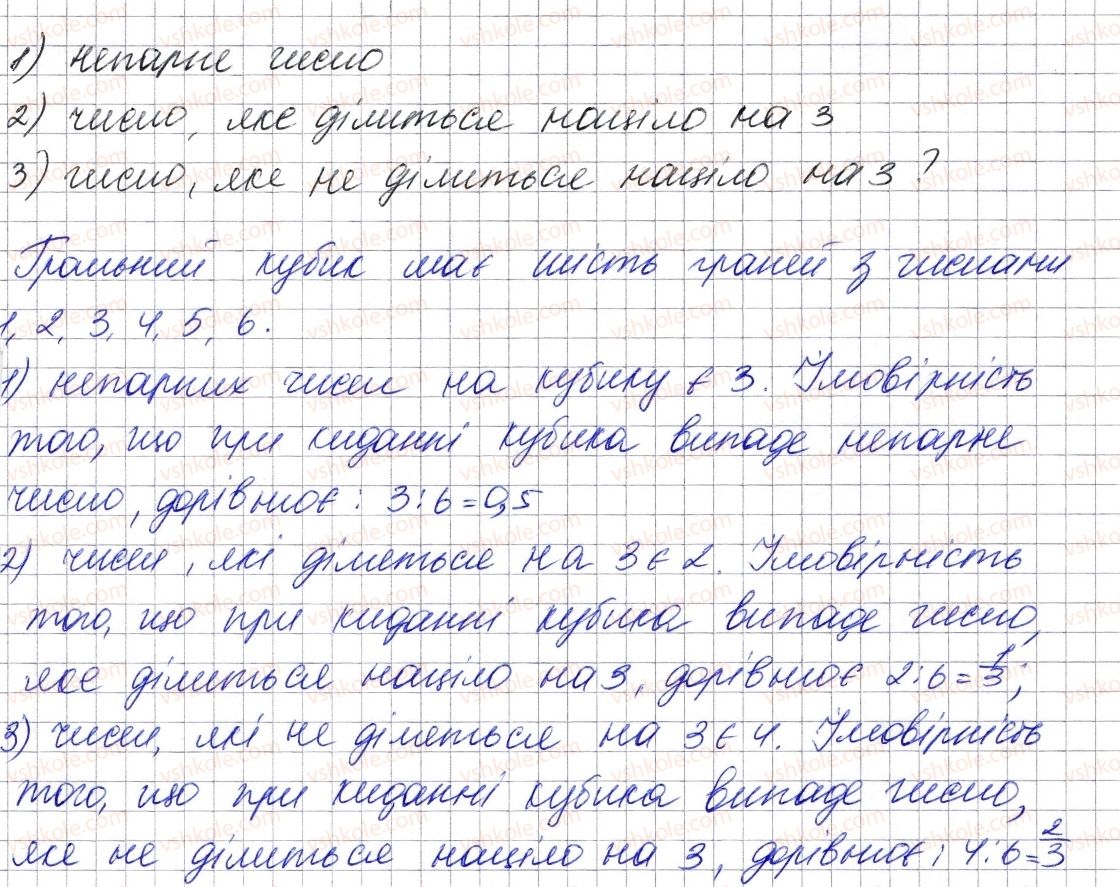 1) непарне число
2) число, яке ділиться націло на 3
3) число, яке не ділиться націло на 3?
Гральний кубик має шість граней з числами
1, 2, 3, 4, 5, 6.
1) непарних чисел на кубику є 3. Імовірність
того, що при киданні кубика випаде непарне
число, дорівнює: 3:6=0,5
2) чисел, які діляться на 3 є 2. Імовірність
того, що при киданні кубика випаде число,
яке ділиться націло на 3, дорівнює 2:6=1/3;
3) чисел, які не діляться на 3 є 4. Імовірність
того, що при киданні кубика випаде число,
яке не ділиться націло на 3, дорівнює: 4:6=2/3